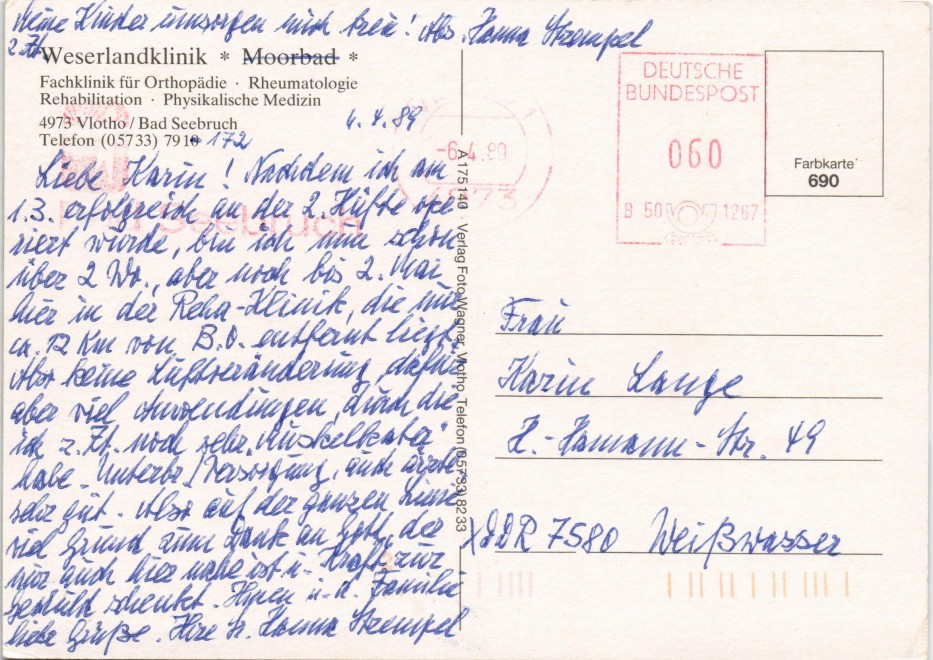 Meine Kinder umsorgen mich treu! Abs. Hanna Strempel
z. Zt.
Weserlandklinik * Moorbad *
Fachklinik für Orthopädie · Rheumatologie
Rehabilitation · Physikalische Medizin
4973 Vlotho / Bad Seebruch
Telefon (05733) 7910 172
4.4.89
Liebe Karin! Nachdem ich am
1.3. erfolgreich an der 2. Hüfte ope
riert wurde, bin ich nun schon
über 2 Wo., aber noch bis 2. Mai
hier in der Reha-Klinik, die nur
ca. 12 Km von B.O. entfernt liegt.
Also keine Luftveränderung, dafür
aber viel Anwendungen, durch die
ich z. Zt. noch sehr "Muskelkater"
habe. Unterbr./Versorgung, auch ärztl.
sehr gut. Also auf der ganzen Linie
viel Grund zum Dank an Gott, der
mir auch hier nahe ist u. Kraft zur
Geduld schenkt. Ihnen u. d. Familie
liebe Grüße. Ihre Sr. Hanna Strempel
A 175140 · Verlag Foto Wagner, Vlotho, Telefon (05733) 8233
-6.4.89
4973
Bad Seebruch
DEUTSCHE
BUNDESPOST
060
B 50 1267
Farbkarte
690
Frau
Karin Lange
H.-Hamann-Str. 49
XDDR 7580 Weißwasser